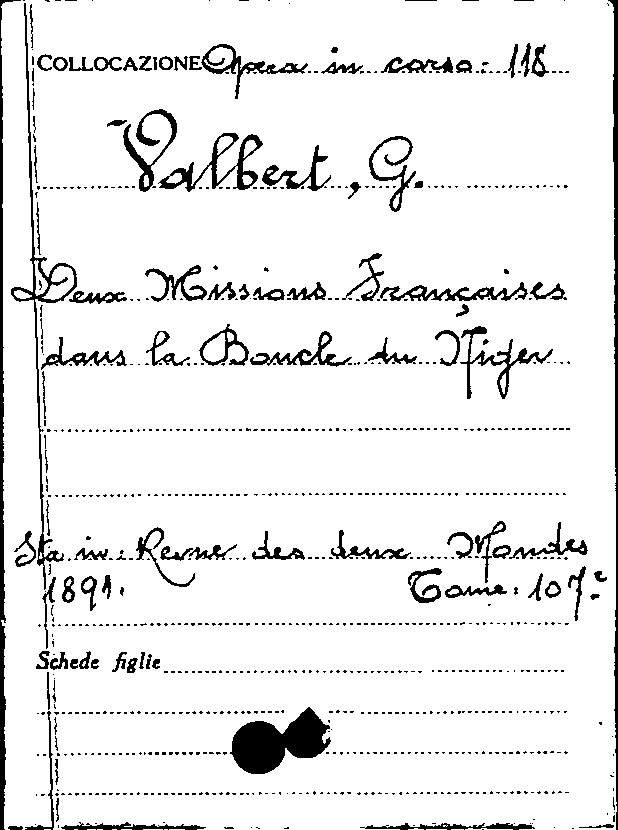 COLLOCAZIONE Opera in corso: 118
Valbert, G.
Deux Missions Françaises
dans la Boucle du Niger
Sta in: Revue des deux Mondes
1891. Tome: 107.e
Schede figlie